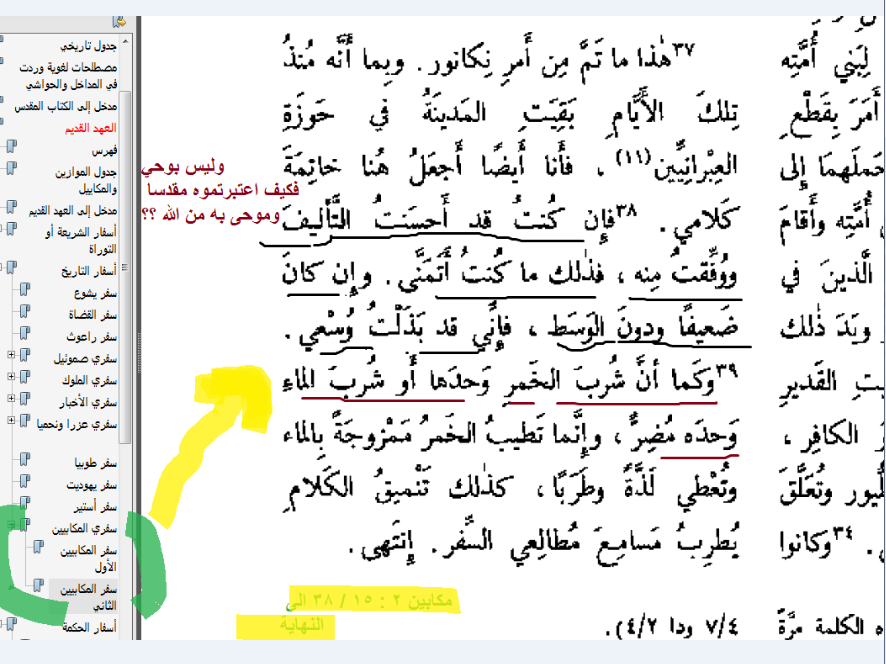 لِبَني أُمَّتِه
أَمَرَ بِقَطْعِ
إلى
أُمَّتِه وأَقامَ
الَّذينَ في
ذٰلك
القَديرِ
الكافِرِ ،
وتُعَلَّقَ
. ٣٤وكانوا
الكلمة مرَّةً
٣٧هٰذا ما تَمَّ مِن أَمرِ نِكانور . وبما أَنَّه مُنذُ
تِلكَ الأَيَّامِ بَقِيَتِ المَدينَةُ في حَوزَةِ
العِبْرانِيِّين(١١) ، فأَنا أَيضًا أَجعَلُ هُنا خاتِمَةَ
كَلامي . ٣٨فإِن كُنتُ قد أَحسَنتُ التَّأليفَ
ووُفِّقتُ مِنه ، فذٰلك ما كُنتُ أَتمَنَّى . وإِن كانَ
ضَعيفًا ودونَ الوَسَط ، فإِنِّي قد بَذَلْتُ وُسْعي .
٣٩وكما أنَّ شُربَ الخَمرِ وَحدَها أَو شُربَ الماءِ
وَحدَه مُضِرٌّ ، وإِنَّما تَطيبُ الخَمرُ مَمْزوجَةً بِالماء
وتُعْطي لَذَّةً وطَرَبًا ، كذٰلك تَنْميقُ الكَلامِ
يُطرِبُ مَسامِعَ مُطالِعي السِّفر . إِنتَهى .
٧/٤ ودا ٤/٢).
وليس بوحي
فكيف اعتبرتموه مقدسا
وموحى به من الله ؟؟
مكابين ٢ : ١٥ / ٣٨ الى
النهاية
جدول تاريخي
مصطلحات لغوية وردت
في المداخل والحواشي
مدخل إلى الكتاب المقدس
العهد القديم
فهرس
جدول الموازين
والمكاييل
مدخل إلى العهد القديم
أسفار الشريعة أو
التوراة
أسفار التاريخ
سفر يشوع
سفر القضاة
سفر راعوث
سفري صموئيل
سفري الملوك
سفري الأخبار
سفري عزرا ونحميا
سفر طوبيا
سفر يهوديت
سفر أستير
سفري المكابيين
سفر المكابيين
الأول
سفر المكابيين
الثاني
أسفار الحكمة